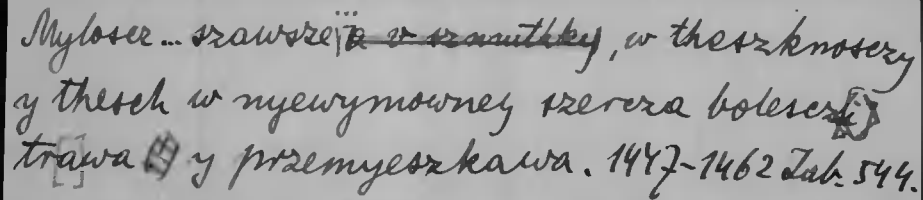 Myloscz... szawsze v szmutky, w theszknosczy
y thesch w nyewymowney szercza bolesczi
trawa y przemyeszkawa. 1447-1462 Zab. 544.